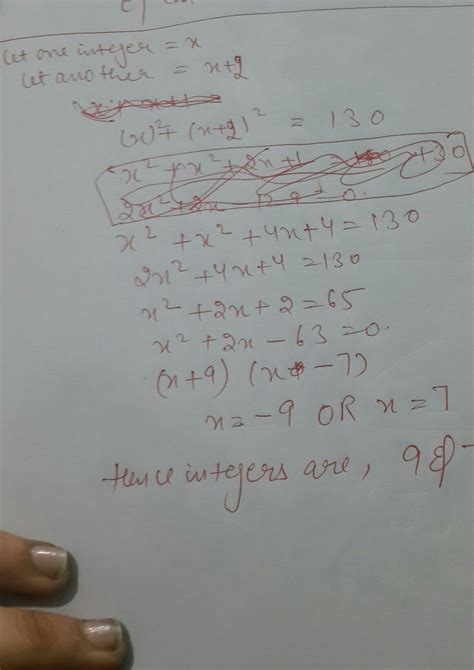 Let one integer = x
Let another = x+2
(x)² + (x+2)² = 130
x² + x² + 2x + 1 = 130
2x² + 2x - 129 = 0.
x² + x² + 4x + 4 = 130
2x² + 4x + 4 = 130
x² + 2x + 2 = 65
x² + 2x - 63 = 0.
(x+9) (x - 7)
x = -9 OR x = 7
Hence integers are, 9 &